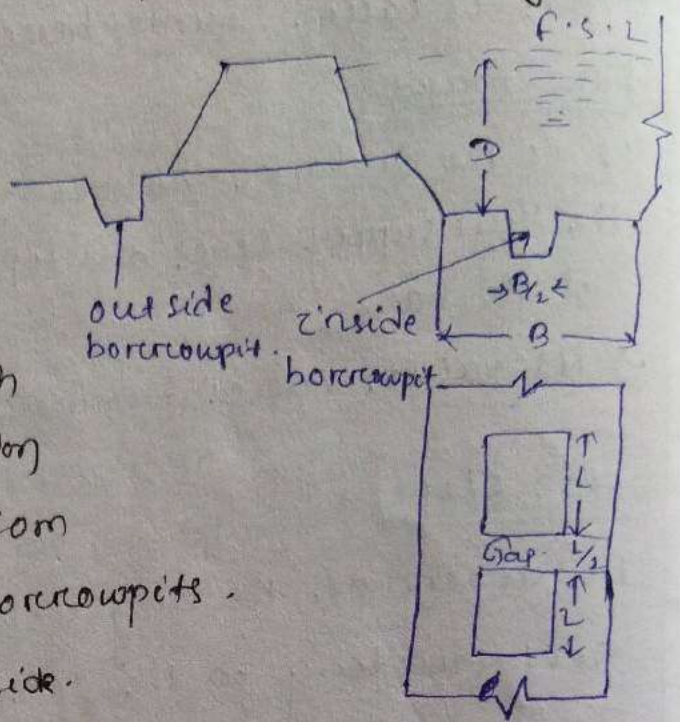 F.S.L
D
outside
borcrowpit.
inside
borcrowpit
B/2
B
L
Gap
L/2
L
orcrowpits.
ide.